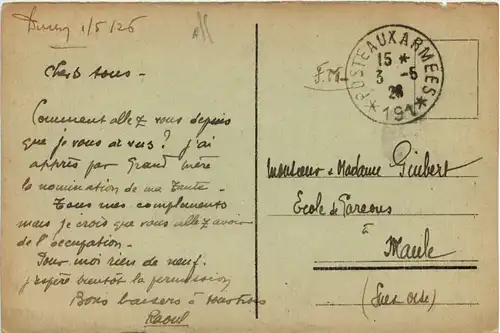 Duren 1/5/26
Chers tous -
Comment allez vous depuis
que je vous ai vus ? j'ai
appris par Grand mère
la nomination de ma Tante -
Tous mes compliments
mais je crois que vous allez avoir
de l'occupation -
Pour moi rien de neuf.
j'espère bientôt la permission
Bons baisers à tous trois
Raoul
F.M.
POSTE AUX ARMEES
15 *
3 -5
26
* 191 *
Monsieur & Madame Guibert
Ecole de Garçons
à
Maule
(Seine & Oise)